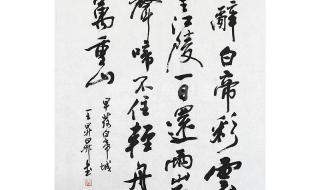 辭白帝彩雲
江陵一日還兩岸
聲啼不住輕舟
萬重山
早發白帝城